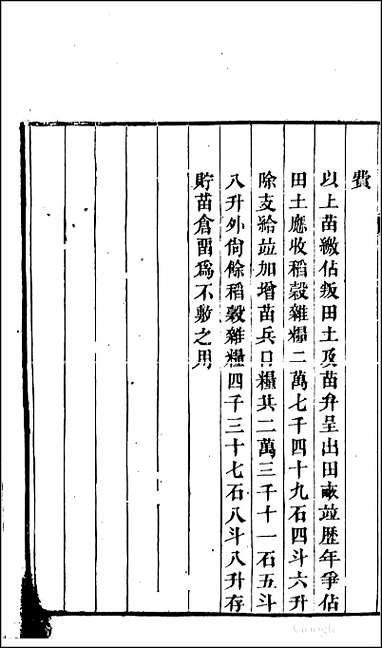 費
以上苗繳佔叛田土及苗弁呈出田畝並歷年爭佔
田土應收稻穀雜糧二萬七千四十九石四斗六升
除支給並加增苗兵口糧共二萬三千十一石五斗
八升外尚餘稻穀雜糧四千三十七石八斗八升存
貯苗倉留爲不敷之用
Google